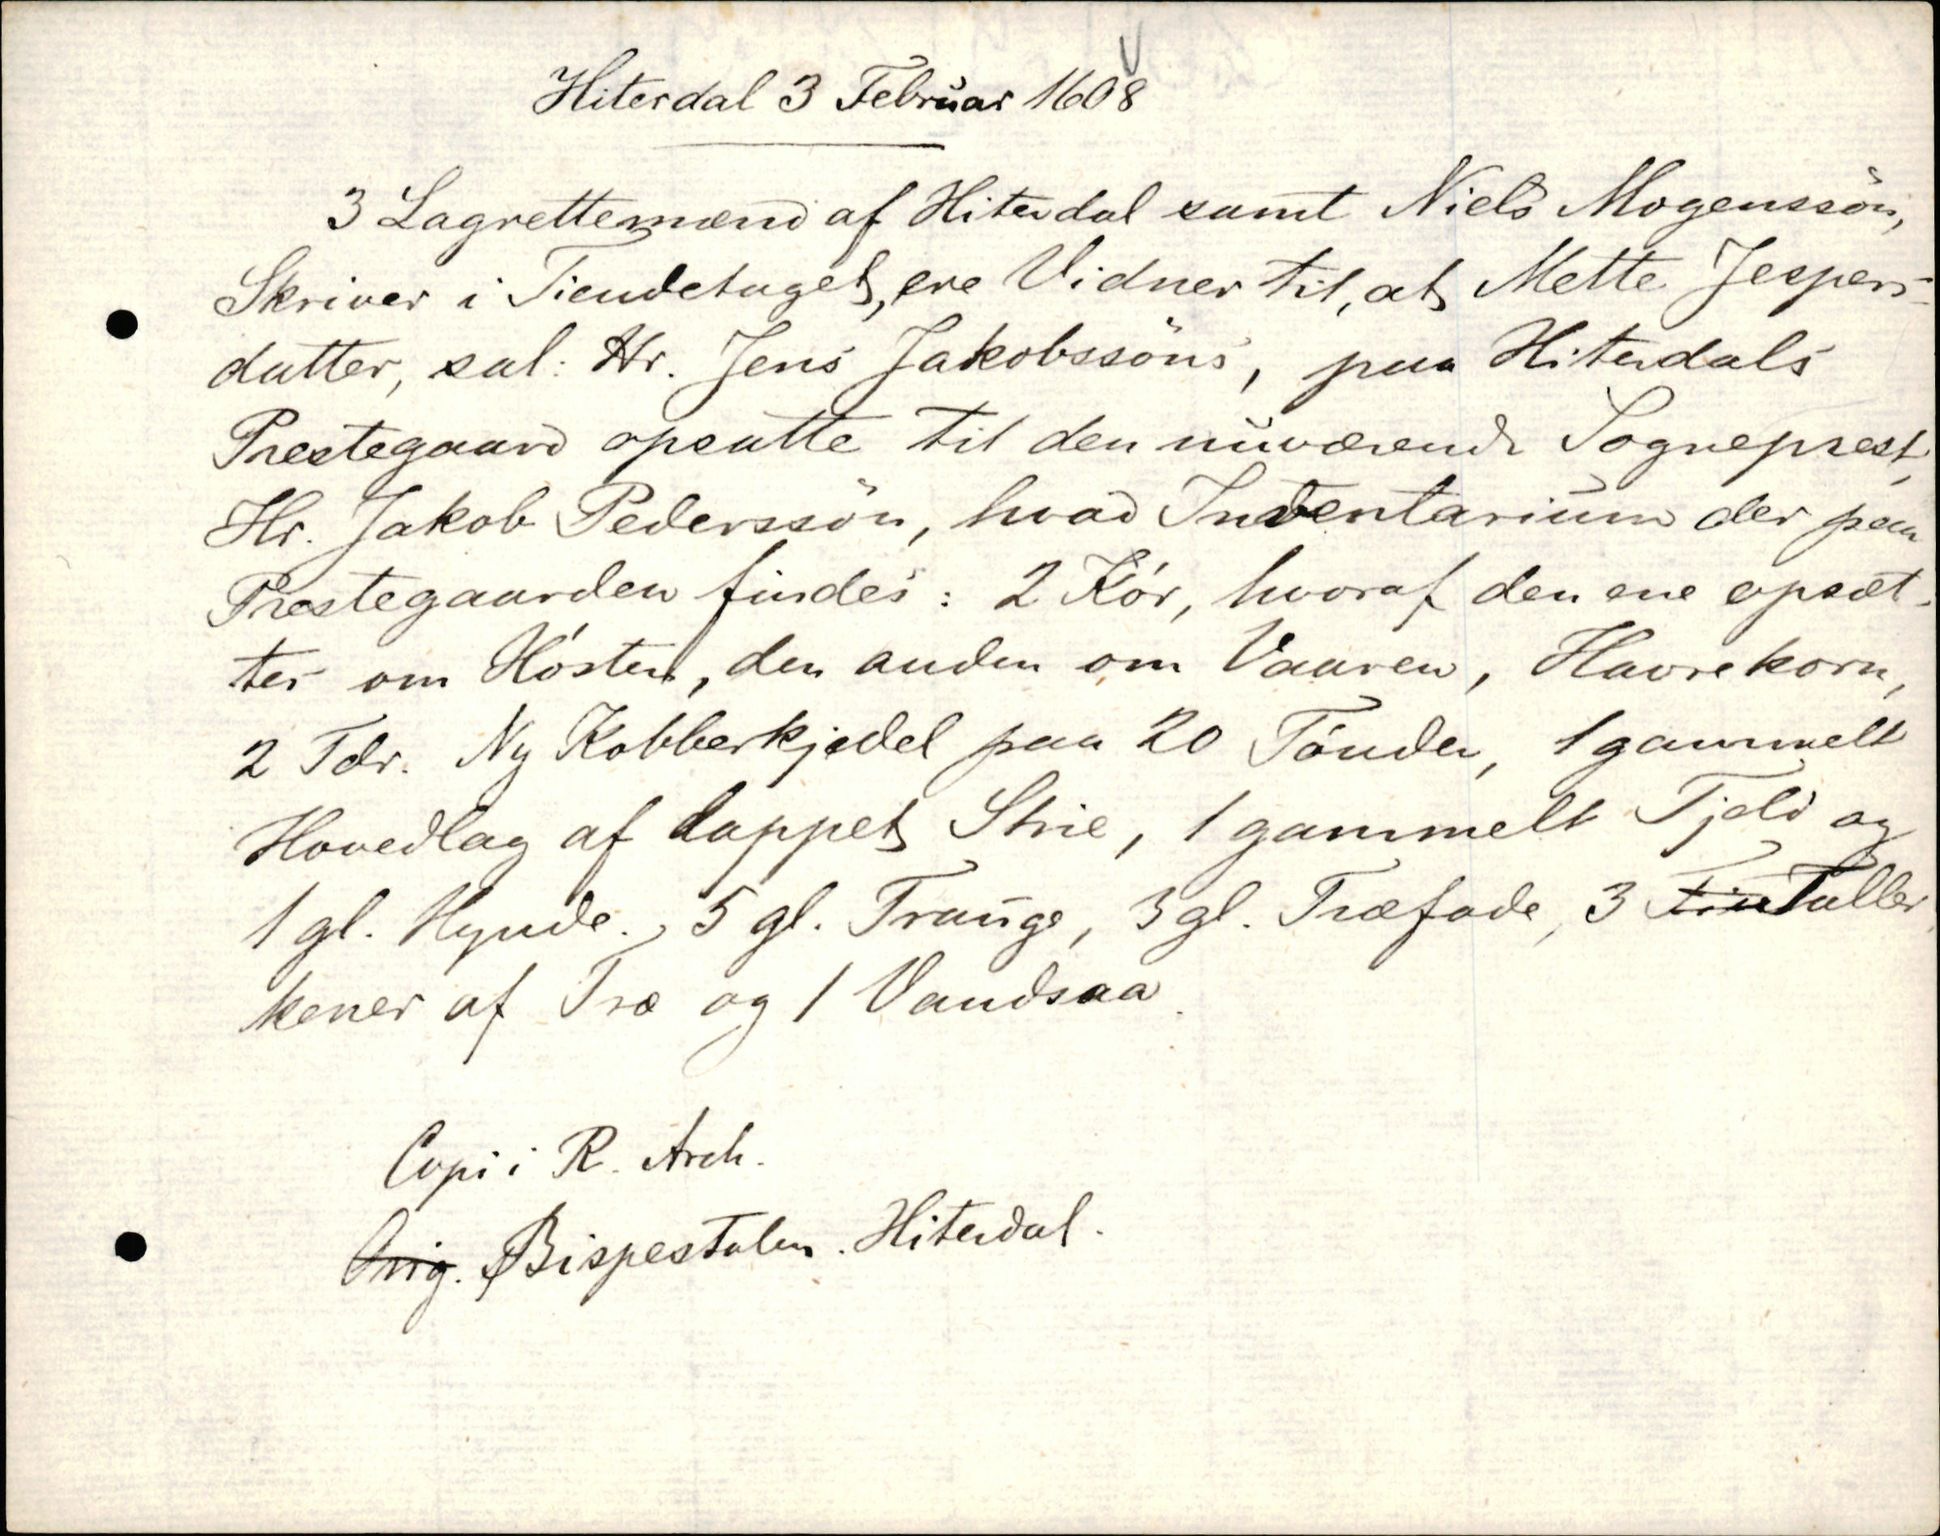 Hiterdal 3 Februar 1608
3 Lagrettemænd af Hiterdal samt Niels Mogenssön,
Skriver i Tiendetaget, ere Vidner til, at Mette Jespers-
datter, sal: Hr. Jens Jakobssöns, paa Hiterdals
Prestegaard opsatte til den nuværende Sogneprest,
Hr. Jakob Pederssön, hvad Inventarium der paa
Prestegaarden findes: 2 Kór, hvoraf den ene opsæt-
tes om Hósten, den anden om Vaaren, Havrekorn,
2 Tdr. Ny Kobberkjedel paa 20 Tónder, 1 gammelt
Hovedlag af lappet Strie, 1 gammelt Tjeld og
1 gl. Hynde., 5 gl. Trauge, 3 gl. Træfade, 3 Tin Taller
kener af Træ og 1 Vandsaa.
Copi i R. Arch.
Orig. Bispestolen. Hiterdal.